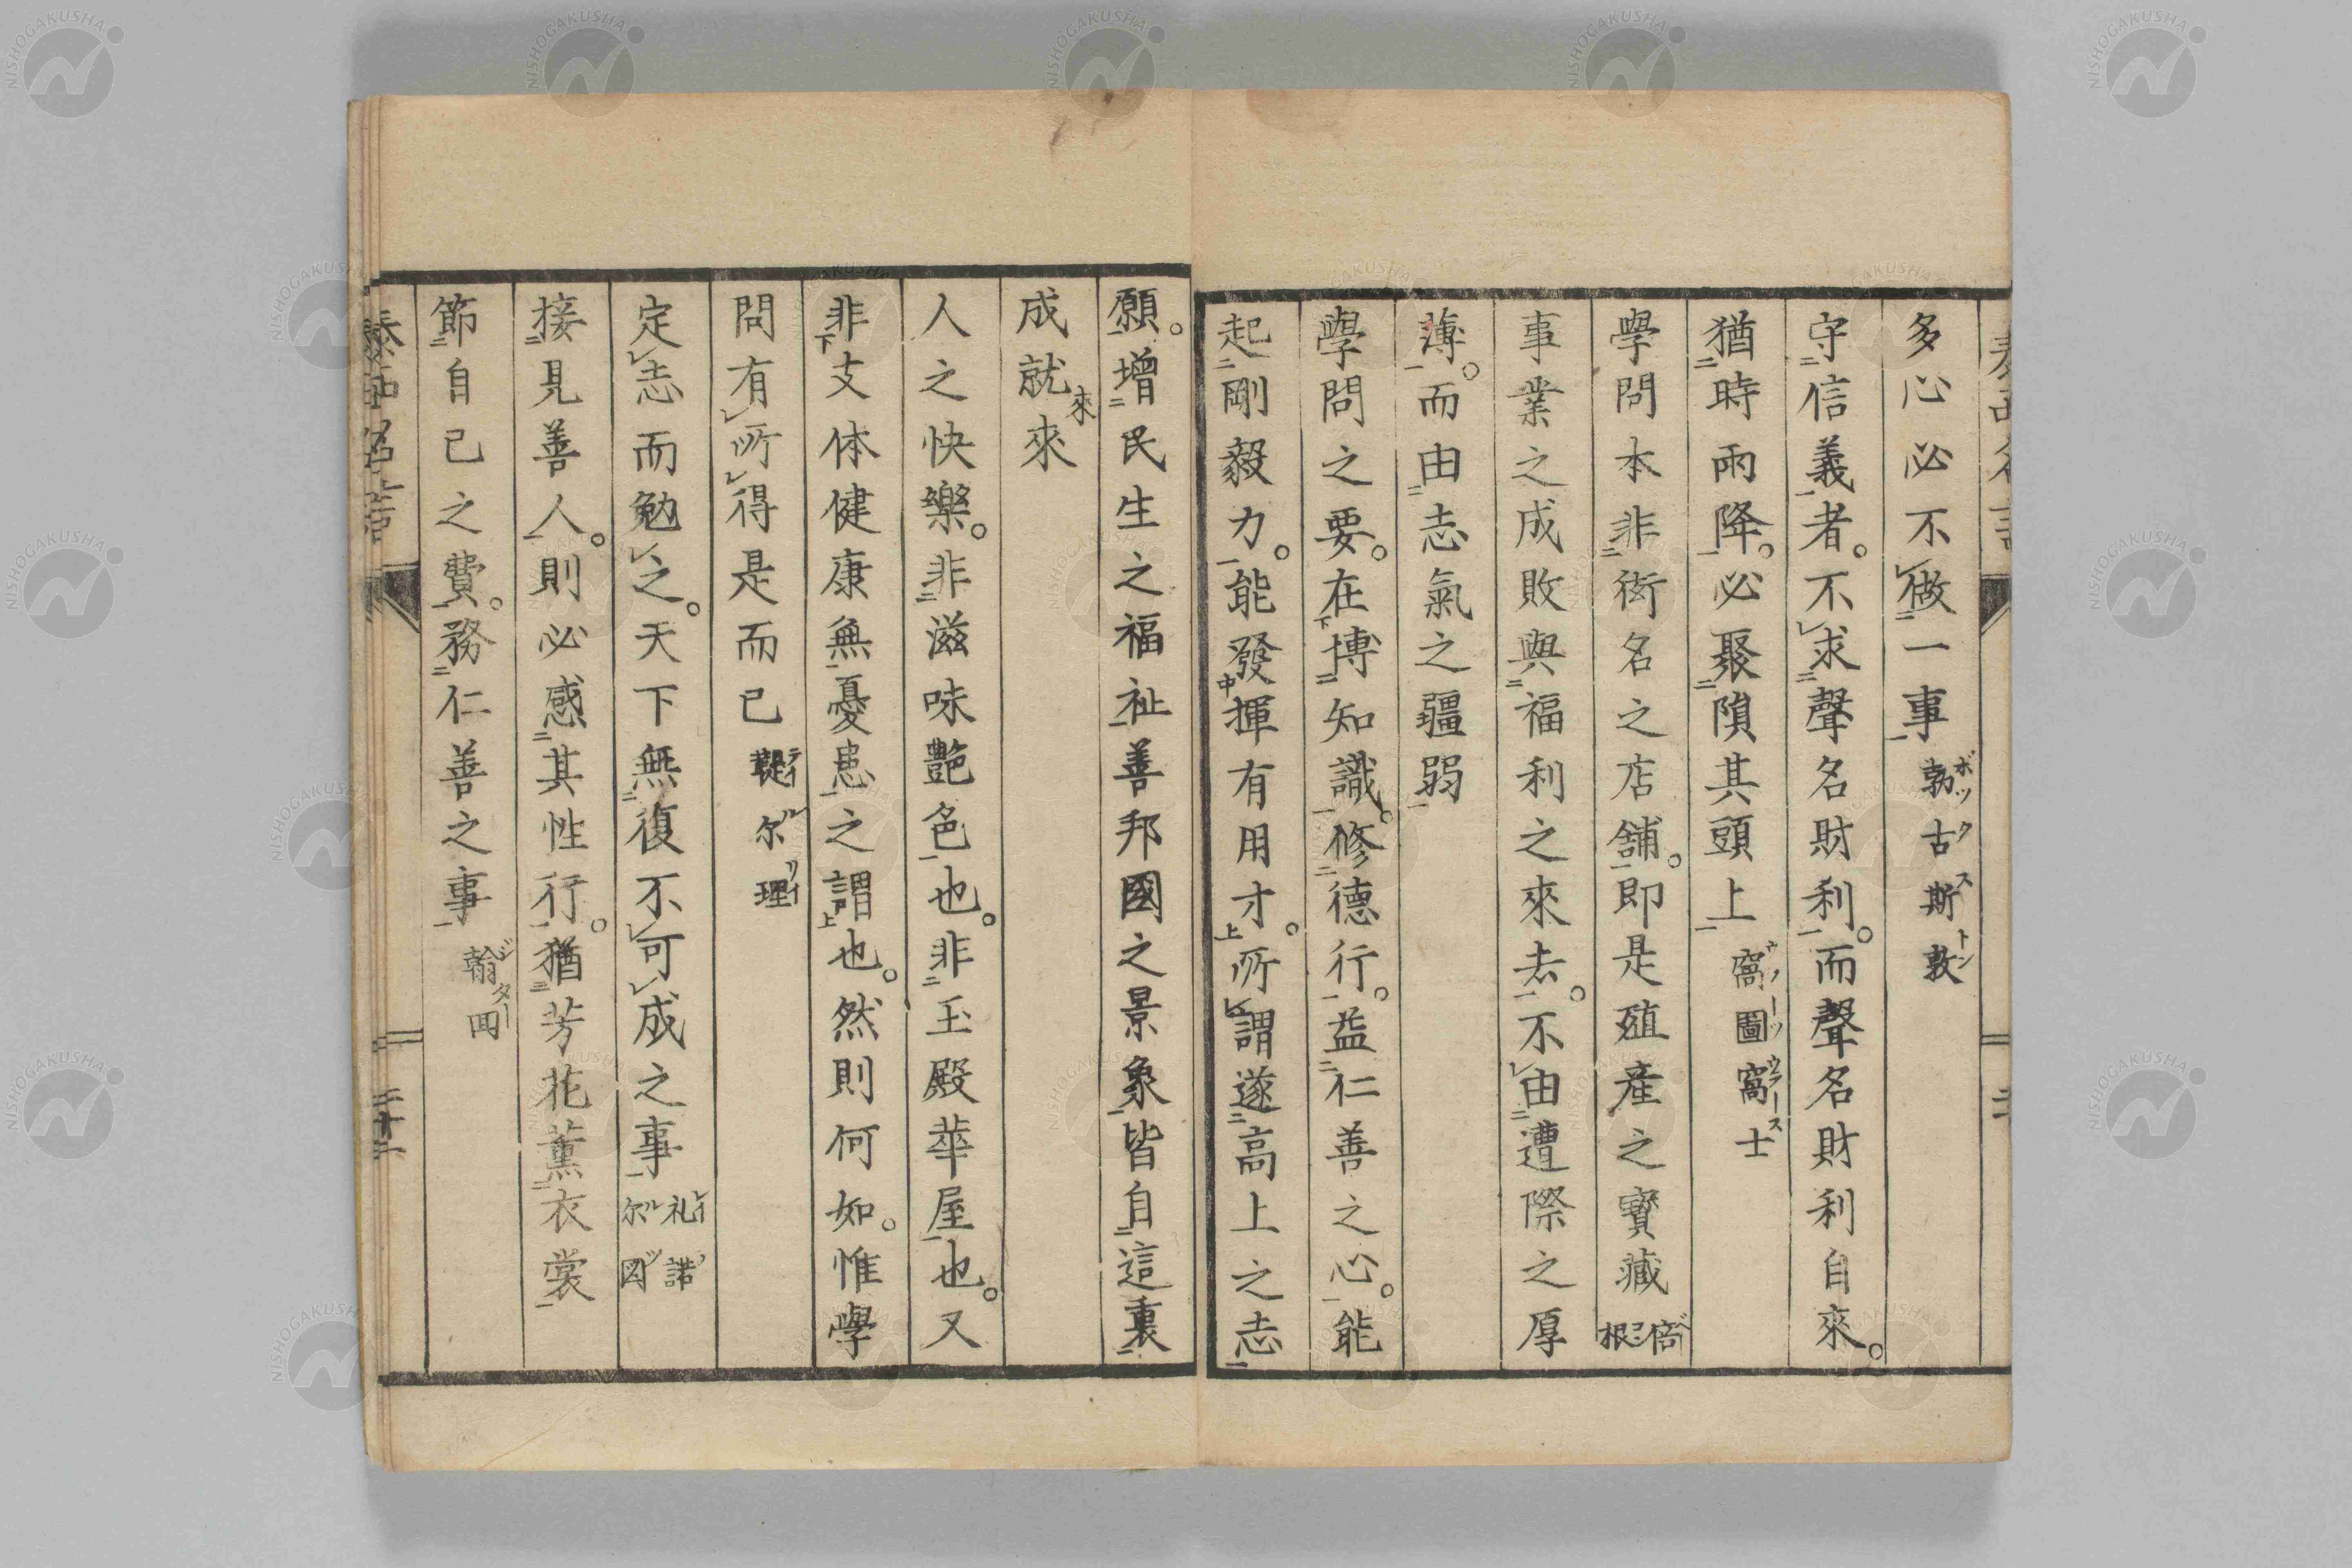 多心必不做一事 勃古斯敦 ボックストン
守信義者。不求聲名財利。而聲名財利自來。
猶時雨降。必聚隕其頭上 窩圖窩士 ウノーツウアース
學問本非衒名之店舗。即是殖產之寶藏 倍根 ベーコン
事業之成敗與福利之來去。不由遭際之厚
薄。而由志氣之彊弱
學問之要。在博知識。修德行。益仁善之心。能
起剛毅力。能發揮有用才。所謂遂高上之志
願。增民生之福祉善邦國之景象皆自這裏
成就來 來
人之快樂。非滋味艷色也。非玉殿華屋也。又
非支体健康無憂患之謂也。然則何如。惟學
問有所得是而已 鞮尔理 テイルリイ
定志而勉之。天下無復不可成之事 礼諾尓図 レイノルツ
接見善人。則必感其性行。猶芳花薰衣裳
節自已之費。務仁善之事 翰回 ジター
泰西名言
二十二
NISHOGAKUSHA